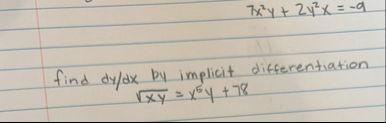 7x²y + 2y²x = -9
find dy/dx by implicit differentiation
√xy = x⁵y + 78